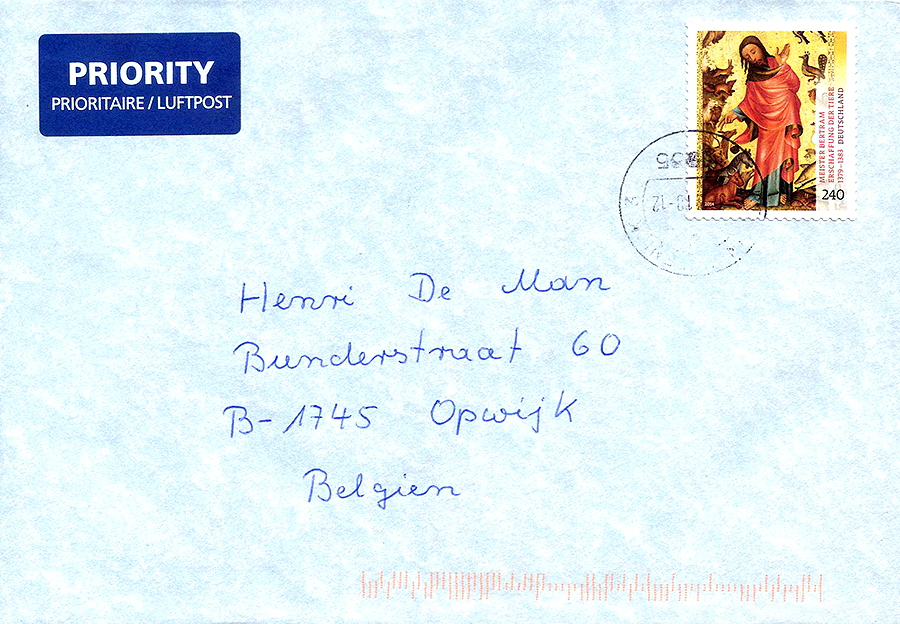 PRIORITY
PRIORITAIRE / LUFTPOST
MEISTER BERTRAM
ERSCHAFFUNG DER TIERE
1379–1383 DEUTSCHLAND
240
2014
Henri De Man
Bunderstraat 60
B-1745 Opwijk
Belgien